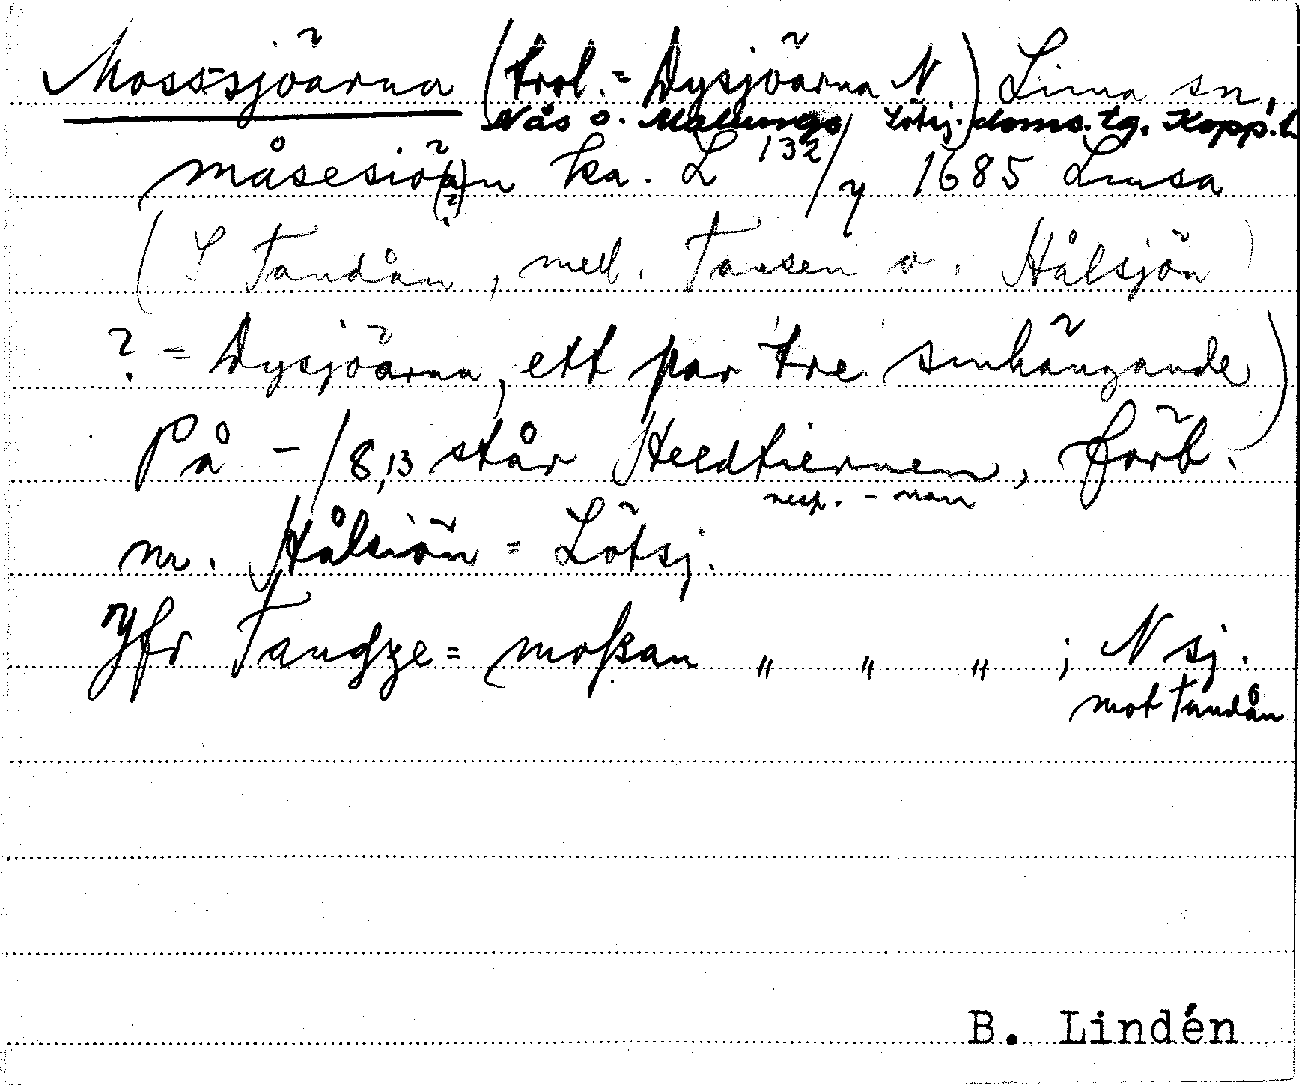 Mosssjöarna (trol. = Dysjöarna N Lötsj.) Lima sn,
Nås o. Malungs doms. tg. Kopp. l.
måsesiö(a?)n ka. L 132/y 1685 Limsa
(S Tandån, mell. Tansen o. Hålsjön)
? = Dysjöarna, ett par tre smhängande)
På - /8,13 står Heedtiernen, förb.
resp. - nan
m. Hålsiön = Lötsj.
Jfr Tandze = moßan " " " ; N sj.
mot Tandån
B. Lindén